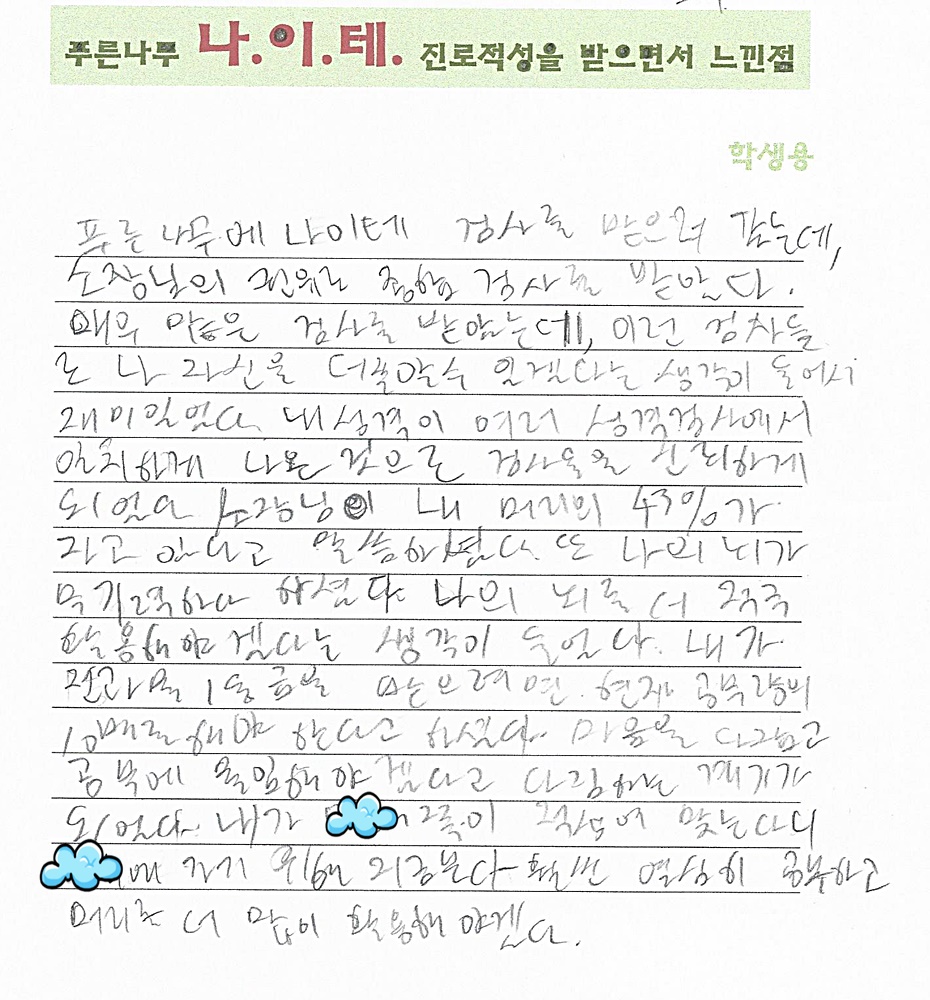 푸른나무 나.이.테. 진로적성을 받으면서 느낀점
학생용
푸른나무에 나이테 검사를 받으러 갔는데,
소장님의 권위로 종합 검사를 받았다.
매우 많은 검사를 받았는데, 이런 검사들
로 나 자신을 더욱 알수 있겠다는 생각이 들어서
재미있었다. 내 성격이 여러 성격검사에서
일치하게 나온 것으로 검사들을 신뢰하게
되었다 소장님이 내 머리의 43%가
자고 있다고 말씀하셨다. 또 나의 뇌가
하셨다 나의 뇌를 더
활용해야 겠다는 생각이 들었다. 내가
전과목 1등급을 맞으려면 현재 공부량의
10배를 해야 한다고 하셨다. 마음을 다잡고
공부에 몰입해야겠다고 다짐하는 계기가
되었다. 내가 쪽이 적성에 맞는다니
에 가기 위해 지금보다 훨씬 열심히 공부하고
머리를 더 많이 활용해야겠다.